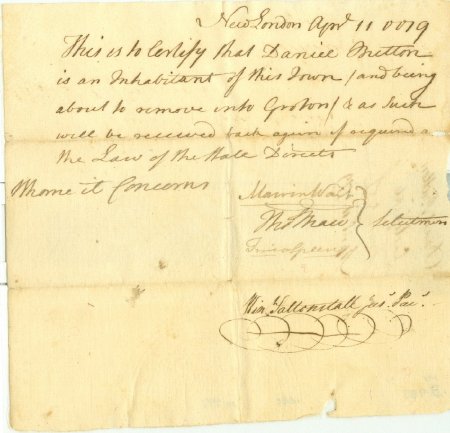 New London Apr. 11 0019
This is to Certify that Daniel Button
is an Inhabitant of this Town (and being
about to remove into Groton) & as such
will be received back again if required as
the Law of the State Directs
Whome it Concerns
Marvin Wait
Tho Shaw
Selectmen
Win. Saltonstall Jus. Pac.